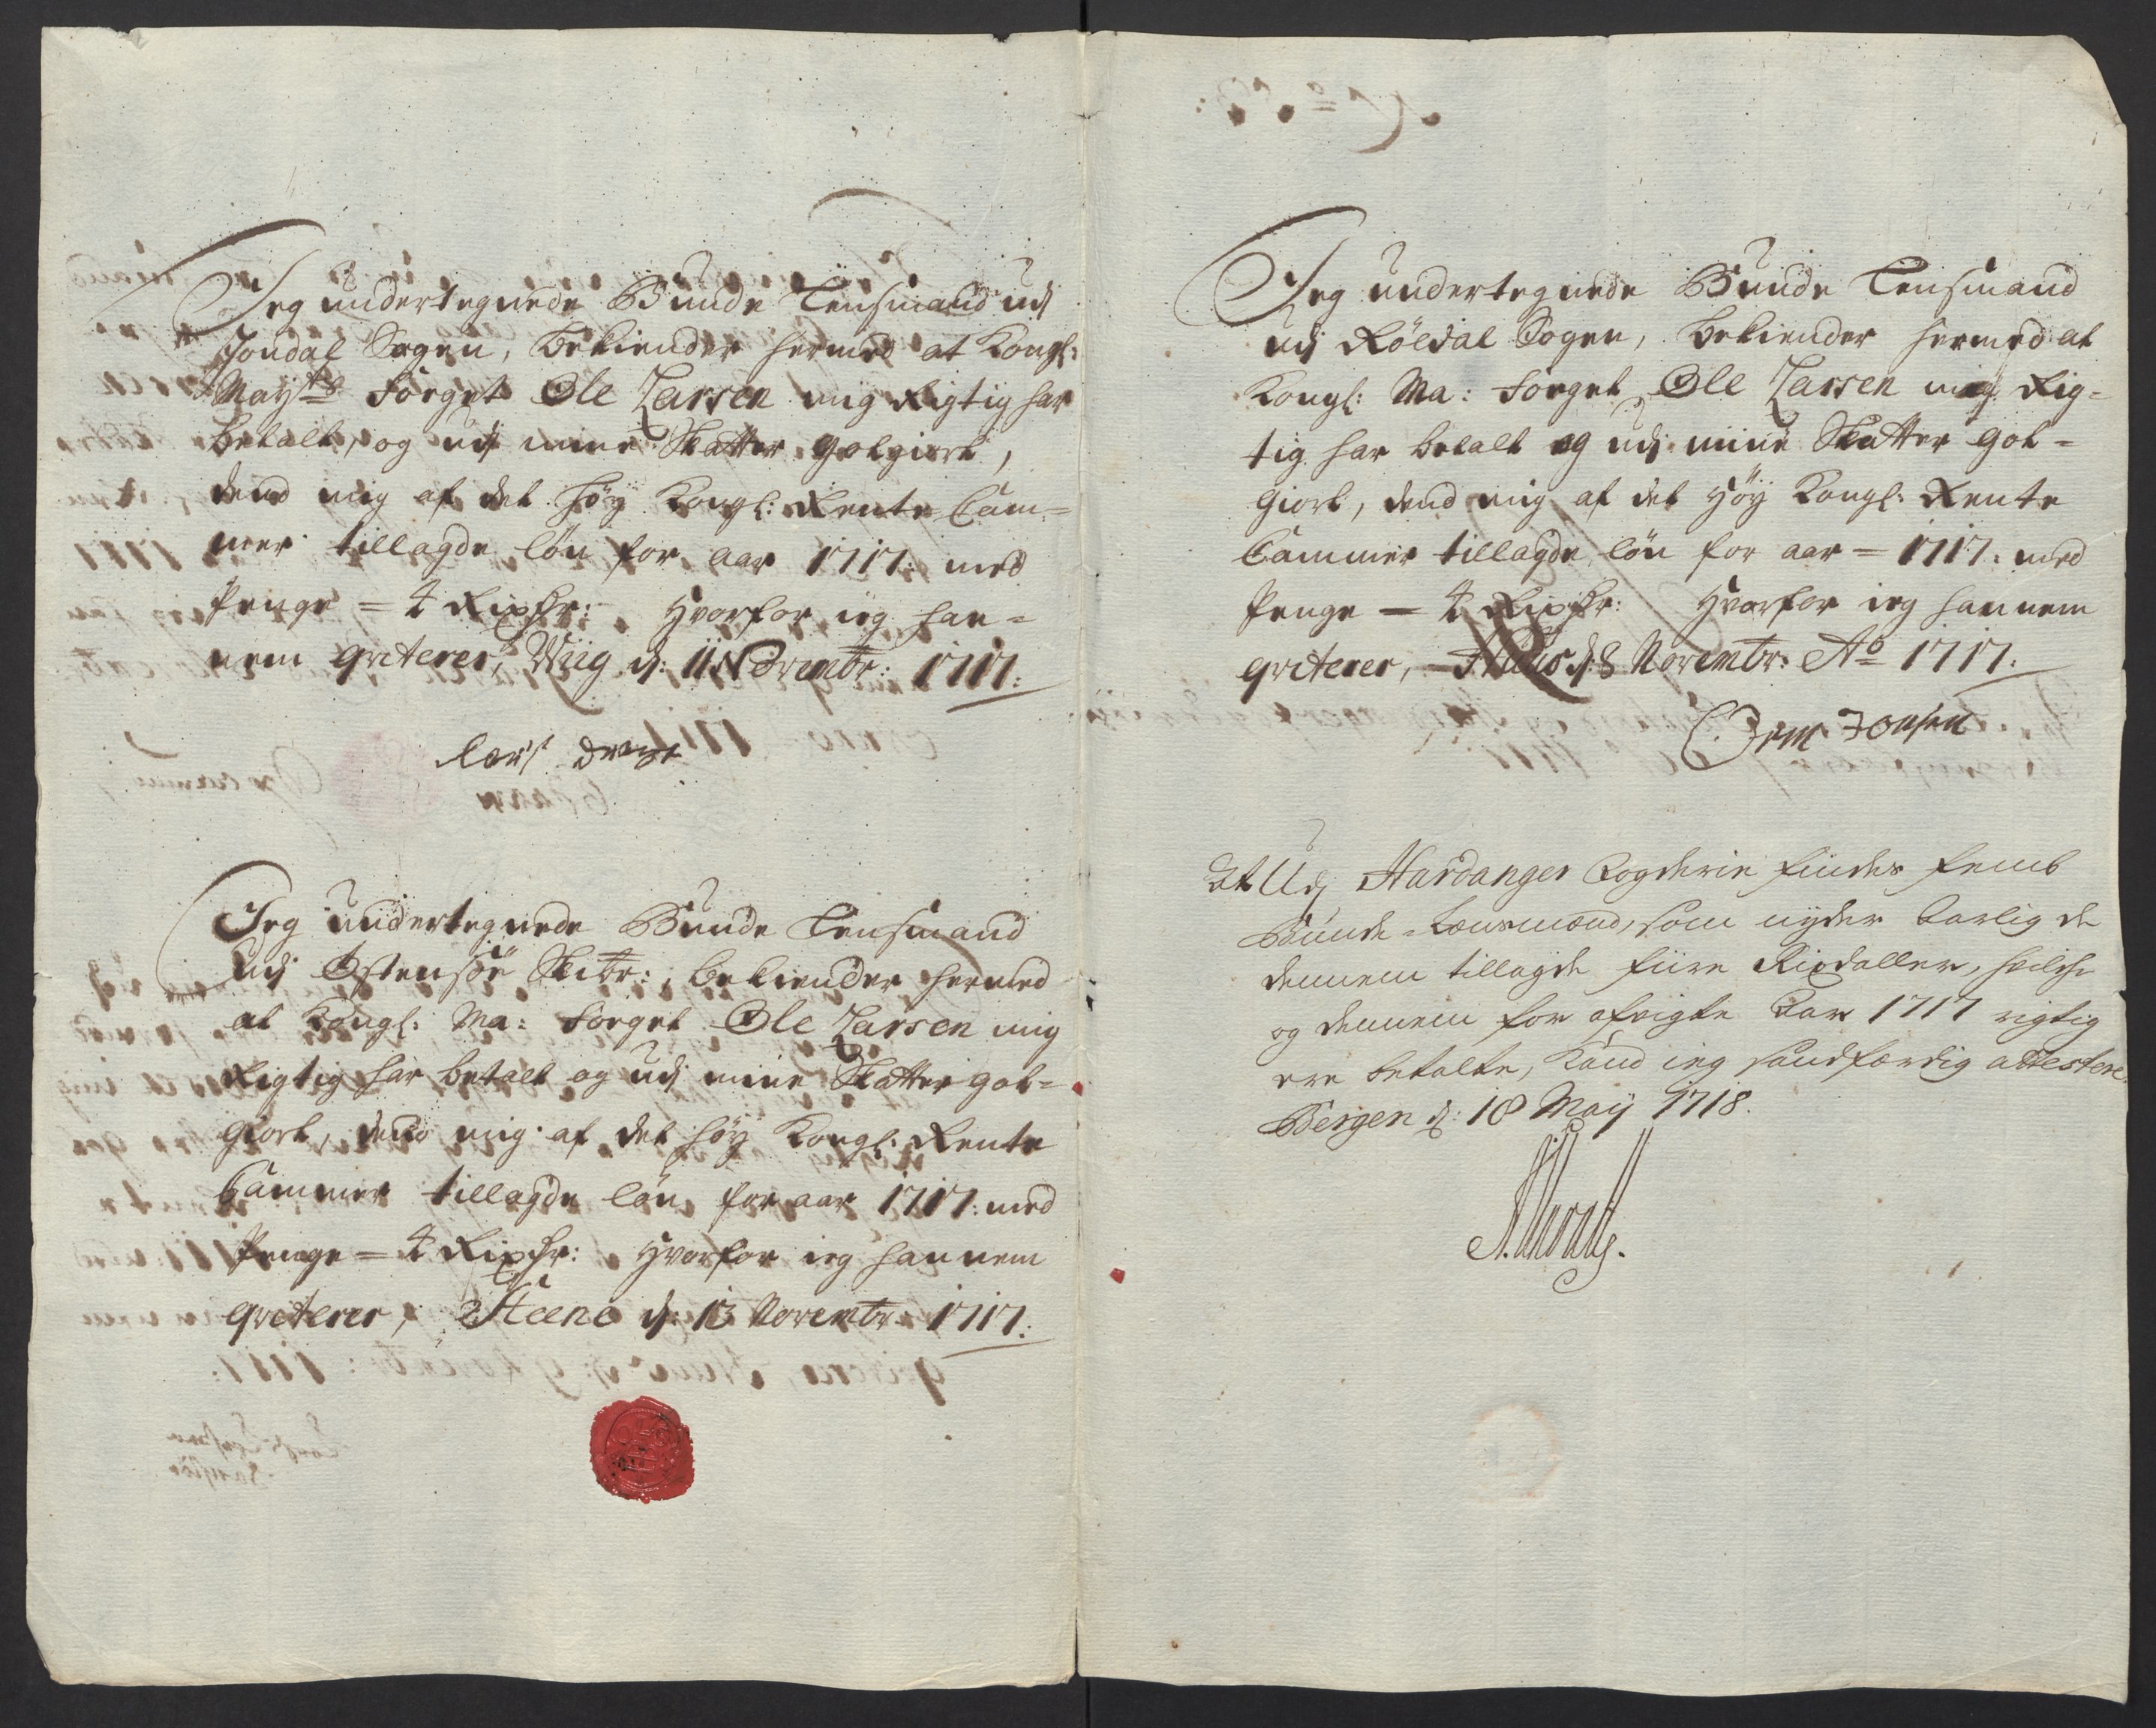 Jeg undertegnede Bunde Lensmand udj
Jondal Sogen, bekiender hermed at Kongl:
Mayts Foeget Ole Larsen mig Rigtig har
betalt, og udj mine Skatter gotgiort,
dend mig af det höy Kongl: Rente Cam=
mer tillagde lön for aar 1717: med
Penge = 4 Rixdr: Hvorfor ieg han=
nem qviterer, Wiig d: 11 Novembr: 1717:
Jeg undertegnede Bunde Lensmand
udj Östensöe Skibr:, bekiender hermed
at Kongl: Ma: Foeget Ole Larsen mig
Rigtig har betalt og udj mine Skatter got=
giort, dend mig af det höy Kongl: Rente
Cammer tillagde lön for aar 1717: med
Penge = 4 Rixdr: Hvorfor ieg hannem
qviterer, Steene d: 13 Novembr 1717:
Jeg undertegnede Bunde Lensmand
udj Röldal Sogen, bekiender hermed at
Kongl: Ma: Foeget Ole Larsen mig Rig=
tig har betalt og udj mine Skatter got=
giort, dend mig af det Höy Kongl: Rente
Cammer tillagde lön for aar = 1717: med
Penge = 4 Rixdr: Hvorfor ieg hannem
qviterer, d: 8 Novembr: Ao 1717:
Orm Jonsen
At Udj Hardanger Fogderie findes femb
Bunde-Lensmænd, som nyder aarlig de
dennem tillagde fiire Rixdaller, hvilche
og dennem for afvigte Aar 1717 rigtig
ere betalte, kand ieg sandfærdig attestere.
Bergen d: 18 Maij 1718.